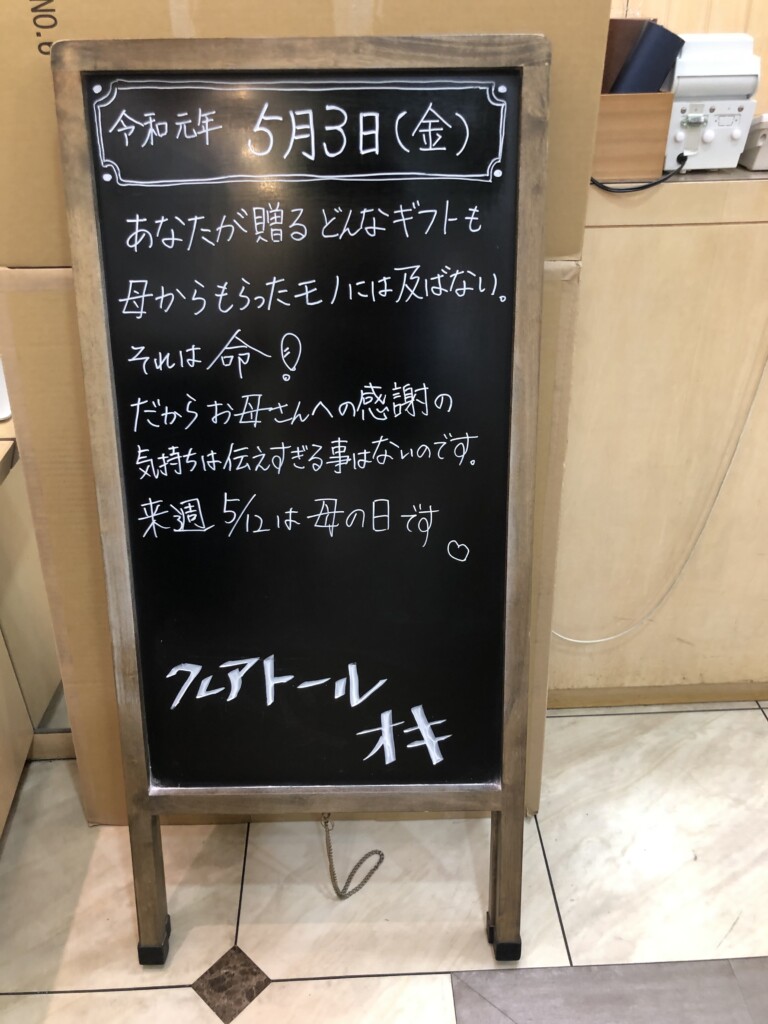 NO.6
令和元年 5月3日(金)
あなたが贈るどんなギフトも
母からもらったモノには及ばない。
それは命!
だからお母さんへの感謝の
気持ちは伝えすぎる事はないのです。
来週 5/12は母の日です♡
クレアトール
オキ